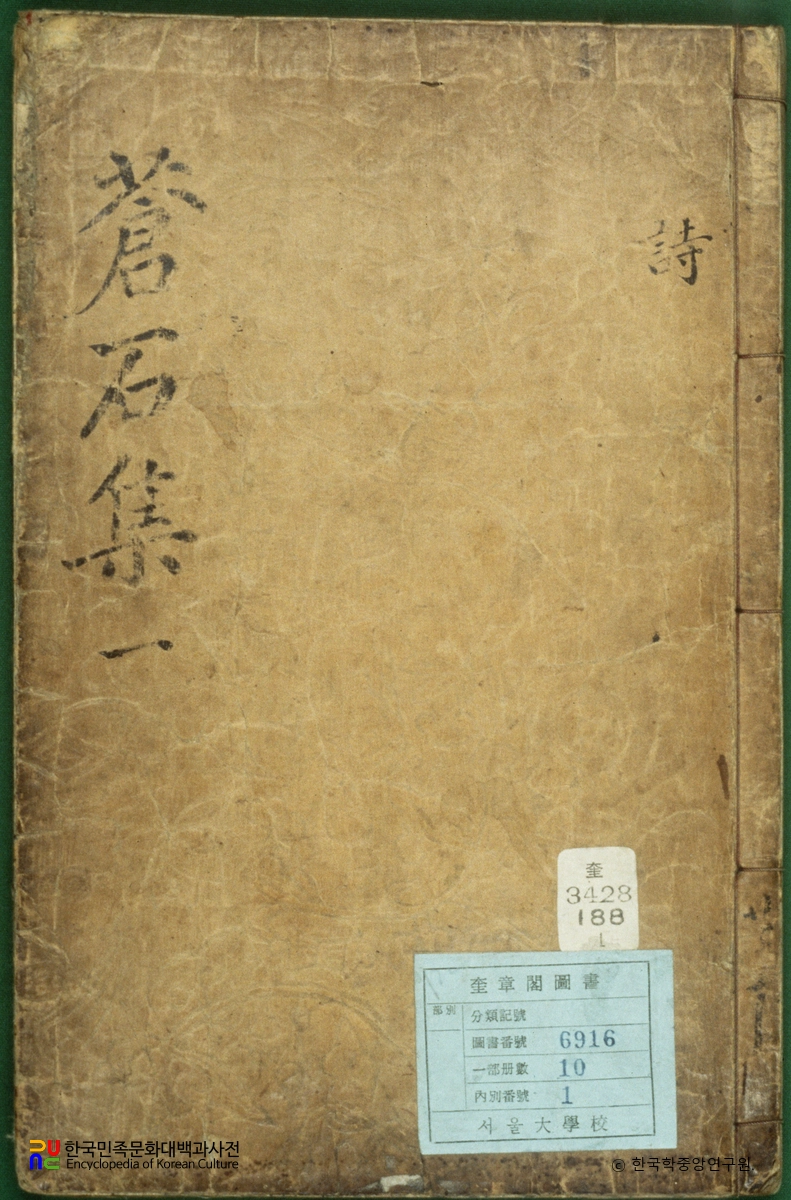 蒼石集 一
詩
奎
3428
188
1
奎章閣圖書
部別
分類記號
圖書番號 6916
一部册數 10
內別番號 1
서울大學校
한국민족문화대백과사전
Encyclopedia of Korean Culture
© 한국학중앙연구원